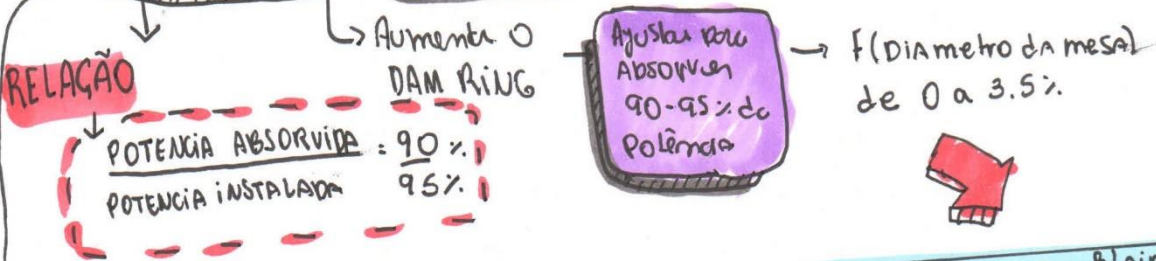 RELAÇÃO
POTENCIA ABSORVIDA = 90 %
POTENCIA INSTALADA 95%
Aumenta O
DAM RING
Ajustar para
Absorver
90-95% da
Potência
F(DIAmetro dA mesa)
de 0 a 3.5%
Blain